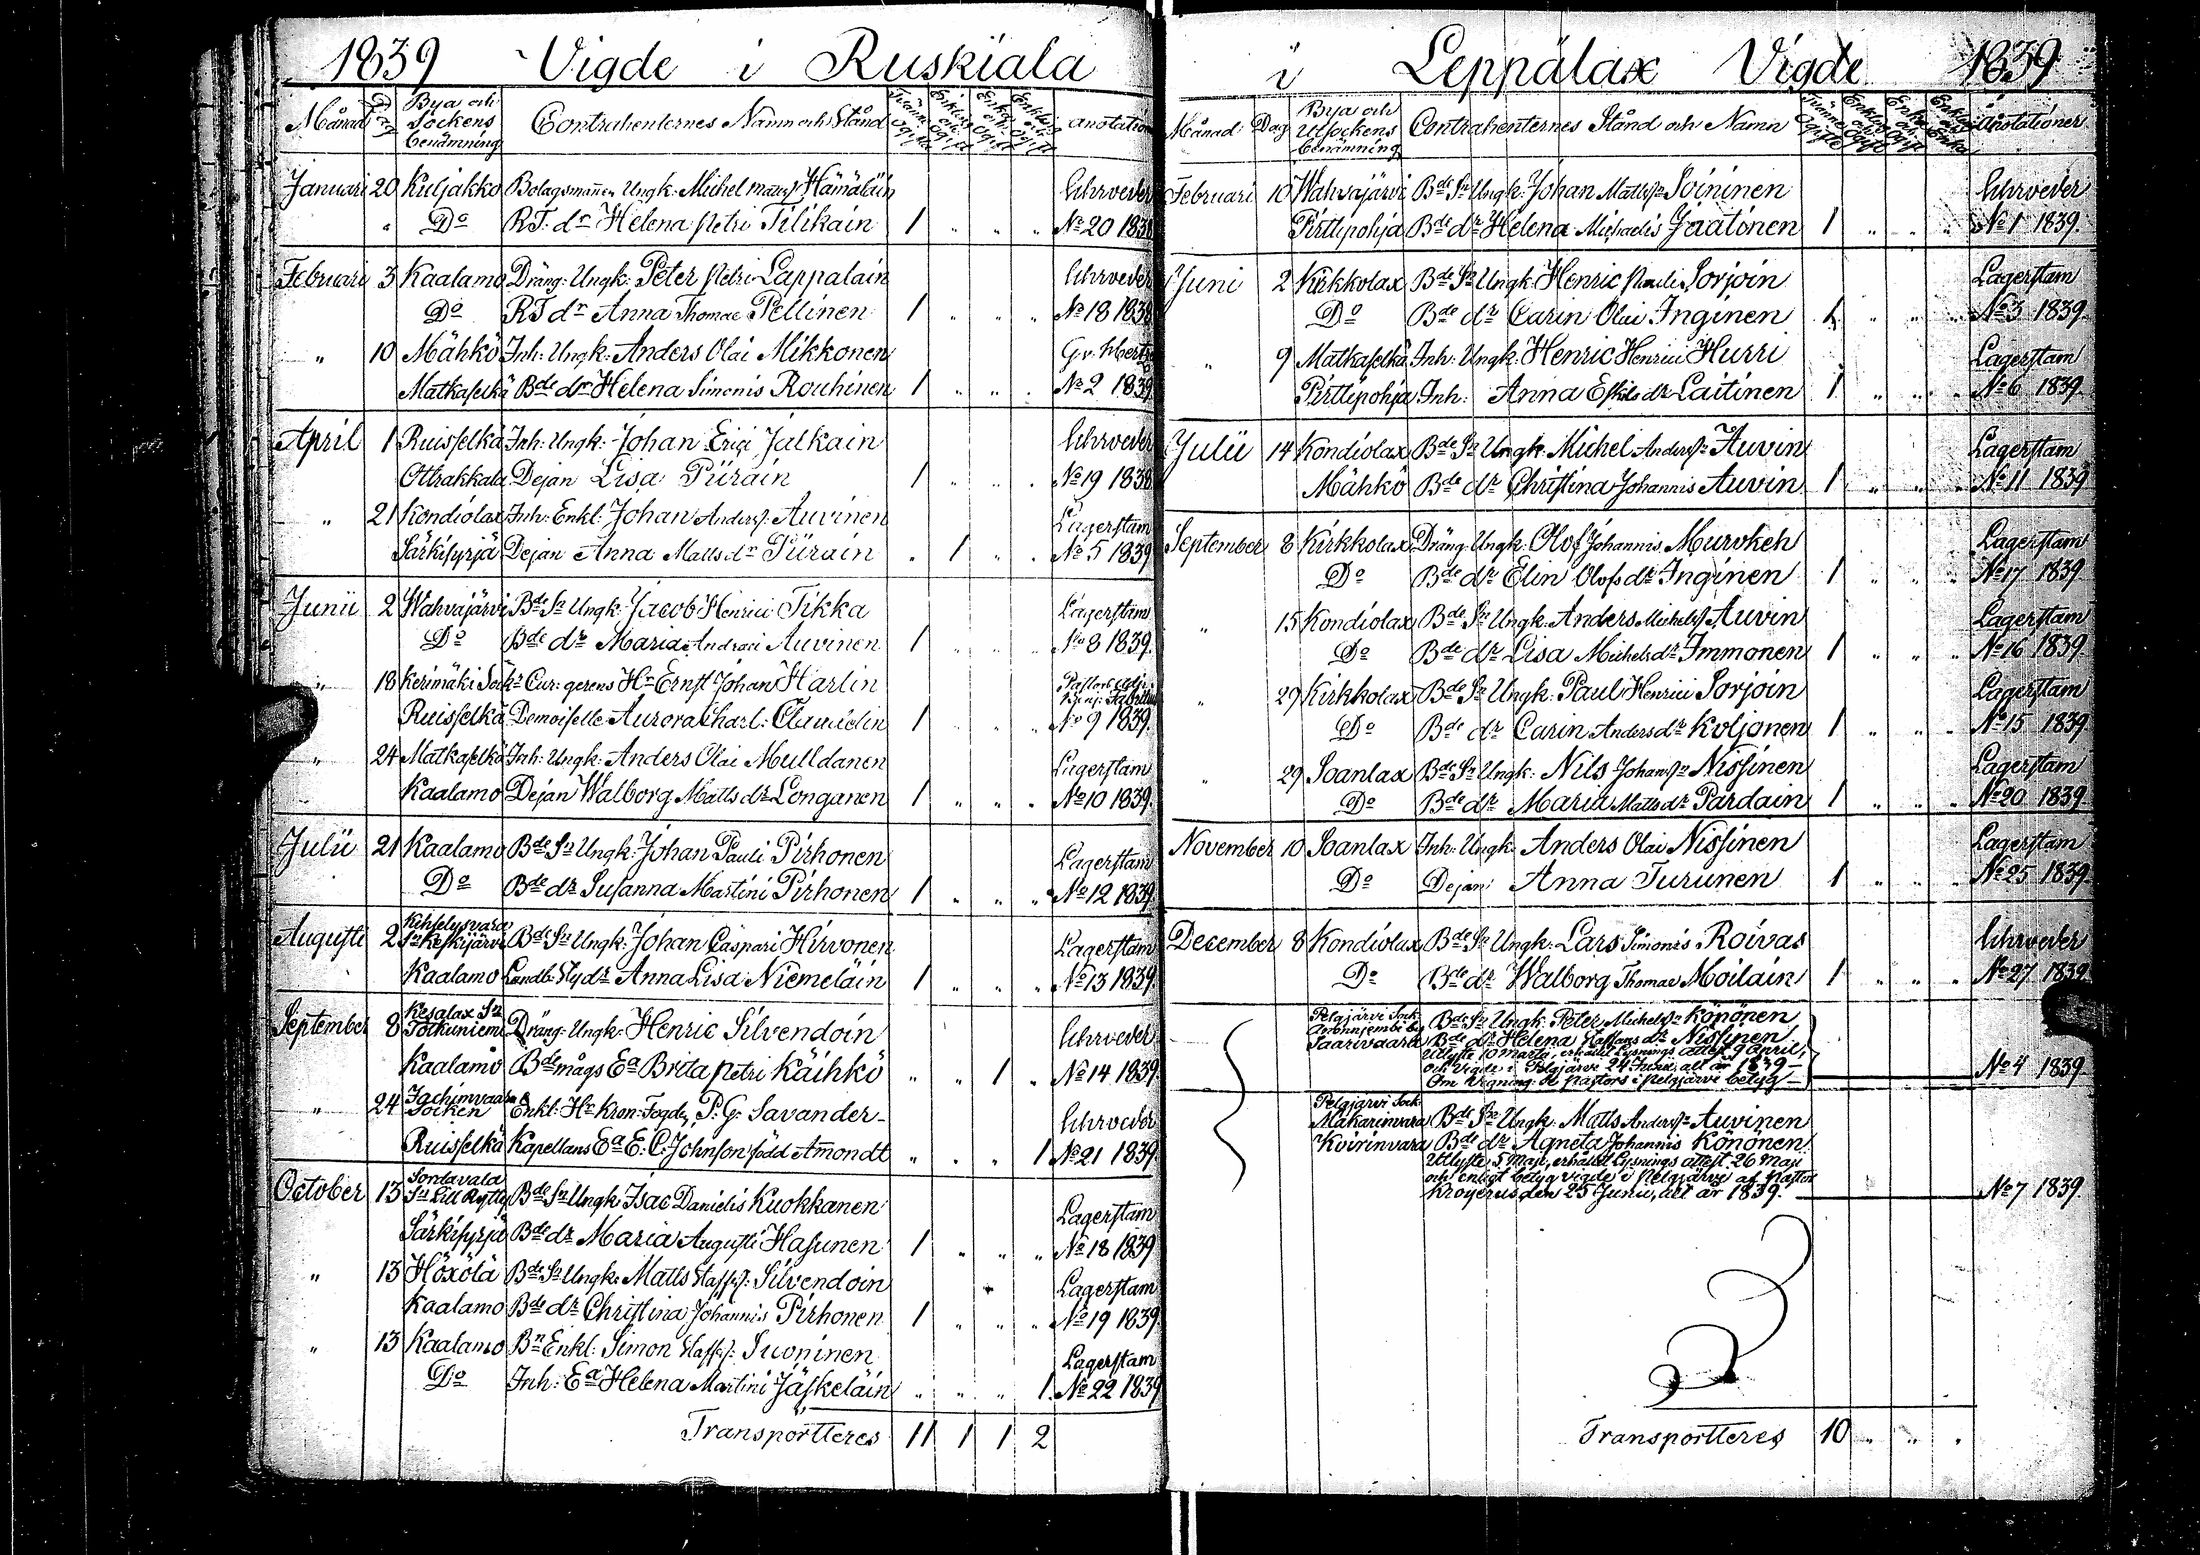 1839 Vigde i Ruskiala
Månad Dag Bya och Sockens benämning Contrahenternes Namn och Stånd anotation
Januari 20 Kuljakko Bolagsmannen Ungk: Michel Hämäläin Uhrveder
" Do R.T. dr Helena Petri Tilikain 1 " " " No 20 1838
Februari 3 Kaalamo Dräng: Ungk: Peter Petri Lappalain Uhrveder
Do RT dr Anna Thomae Pellinen 1 " " " No 18 1838
" 10 Mähkö Inh: Ungk: Anders Olai Mikkonen
Matkaselkä Bde dr Helena Simonis Rouhinen 1 " " " No 2 1839
April 1 Ruisselkä Inh: Ungk: Johan Erici Jalkain Uhrveder
Ottrakkala Dejan Lisa Piirain 1 " " " No 19 1838
" 21 Kondiolax Inh: Enkl: Johan Anderss: Auvinen Lagerstam
Särkisyrjä Dejan Anna Matts dr Piirain " 1 " " No 5 1839
Junii 2 Wahvajärvi Bde Sn Ungk: Jacob Henrici Tikka Lagerstam
Do Bde dr Maria Andreæ Auvinen 1 " " " No 8 1839.
" 18 Kerimäki Sock: Cur: gerens Hr Ernst Johan Harlin
Ruisselkä Demoiselle Aurora Charl: Claudelin 1 " " " No 9 1839.
" 24 Matkaselkä Inh: Ungk: Anders Olai Mulldanen Lagerstam
Kaalamo Dejan Walborg Matts dr Longanen 1 " " " No 10 1839.
Julii 21 Kaalamo Bde Sn Ungk: Johan Pauli Pirhonen Lagerstam
Do Bde dr Susanna Martini Pirhonen 1 " " " No 12 1839.
Augusti 2 Kihtelysvara Sn Keskijärvi Bde Sn Ungk: Johan Caspari Hirvonen Lagerstam
Kaalamo Landb: Sty dr Anna Lisa Niemeläin 1 " " " No 13 1839
September 8 Kesalax Sn Dräng: Ungk: Henric Silvendoin Uhrveder
Kaalamo Bde mågs Ea Brita Petri Käihkö " " 1 " No 14 1839
" 24 Socken Enkl: Hr Kron: Fogden P: G: Savander Uhrveder
Ruisselkä Kapellans Ea E: C: Johnson född Amondt " " " 1 No 21 1839
October 13 Sordavala Sn Lill Rytty Bde Sn Ungk Isac Danielis Kuokkanen Lagerstam
Särkisyrjä Bde dr Maria Augusti Hasunen 1 " " " No 18 1839
" 13 Höxölä Bde Sn Ungk: Matts Staffs: Silvendoin Lagerstam
Kaalamo Bde dr Christina Johannis Pirhonen 1 " " " No 19 1839
" 13 Kaalamo Bn Enkl: Simon Staffs: Suoninen Lagerstam
Do Inh: Ea Helena Martini Jäskeläin " " " 1 No 22 1839
Transportteres 11 1 1 2
i Leppälax Vigde 1839
Månad Dag Bya och Utsockens benämning Contrahenternes Stånd och Namn Anotationer
Februari 10 Wahvajärvi Bde Sn Ungk: Johan Mattss: Soininen Uhrveder
Pirttipohja Bde dr Helena Michaelis Jaatinen 1 " " " No 1 1839.
Juni 2 Kirkkolax Bde Sn Ungk: Henric Pauli Sorjoin Lagerstam
Do Bde dr Carin Olai Inginen 1 " " " No 3 1839.
" 9 Matkaselkä Inh: Ungk: Henric Henrici Hurri Lagerstam
Pirttipohja Inh: Anna Eskils dr Laitinen 1 " " " No 6 1839.
Julii 14 Kondiolax Bde Sn Ungk: Michel Anderss: Auvin Lagerstam
Mähkö Bde dr Christina Johannis Auvin 1 " " " No 11 1839
September 8 Kirkkolax Dräng Ungk: Olof Johannis Murokeh Lagerstam
Do Bde dr Elin Olofs dr Inginen 1 " " " No 17 1839
" 15 Kondiolax Bde Sn Ungk: Anders Michelss Auvin Lagerstam
Do Bde dr Lisa Michels dr Immonen 1 " " " No 16 1839.
" 29 Kirkkolax Bde Sn Ungk: Paul Henrici Sorjoin Lagerstam
Do Bde dr Carin Anders dr Koljonen 1 " " " No 15 1839
" 29 Soanlax Bde Sn Ungk: Nils Johanss Nissinen Lagerstam
Do Bde dr Maria Matts dr Pardain 1 " " " No 20 1839
November 10 Soanlax Inh: Ungk: Anders Olai Nissinen Lagerstam
Do Dejan Anna Turunen 1 " " " No 25 1839
December 8 Kondiolax Bde Sn Ungk: Lars Simonis Roivas Uhrveder
Do Bde dr Walborg Thomae Moilain 1 " " " No 27 1839
Pelgjärvi Sock: Bde Sn Ungk: Peter Michelss Könönen
Saarivaara Bde dr Helena Staffans dr Nissinen,
Utlyste 10 Martii, erhållit Lysnings attest 9 April,
och Vigde i Pelgjärvi 24 Junii, allt år 1839
Om vigning: af Pastors i Pelgjärvi betyg No 4 1839.
Pelgjärvi Sock: Makarinvara Bde Sn Ungk: Matts Anderss Auvinen
Koirinvara Bde dr Agneta Johannis Könönen
Utlyste 5 Maji, erhållit Lysnings attest 26 Maji
och enligt betyg vigde i Pelgjärvi af Pastor
Kroyerus den 25 Junii, allt år 1839. No 7 1839.
Transportteres 10 " " "